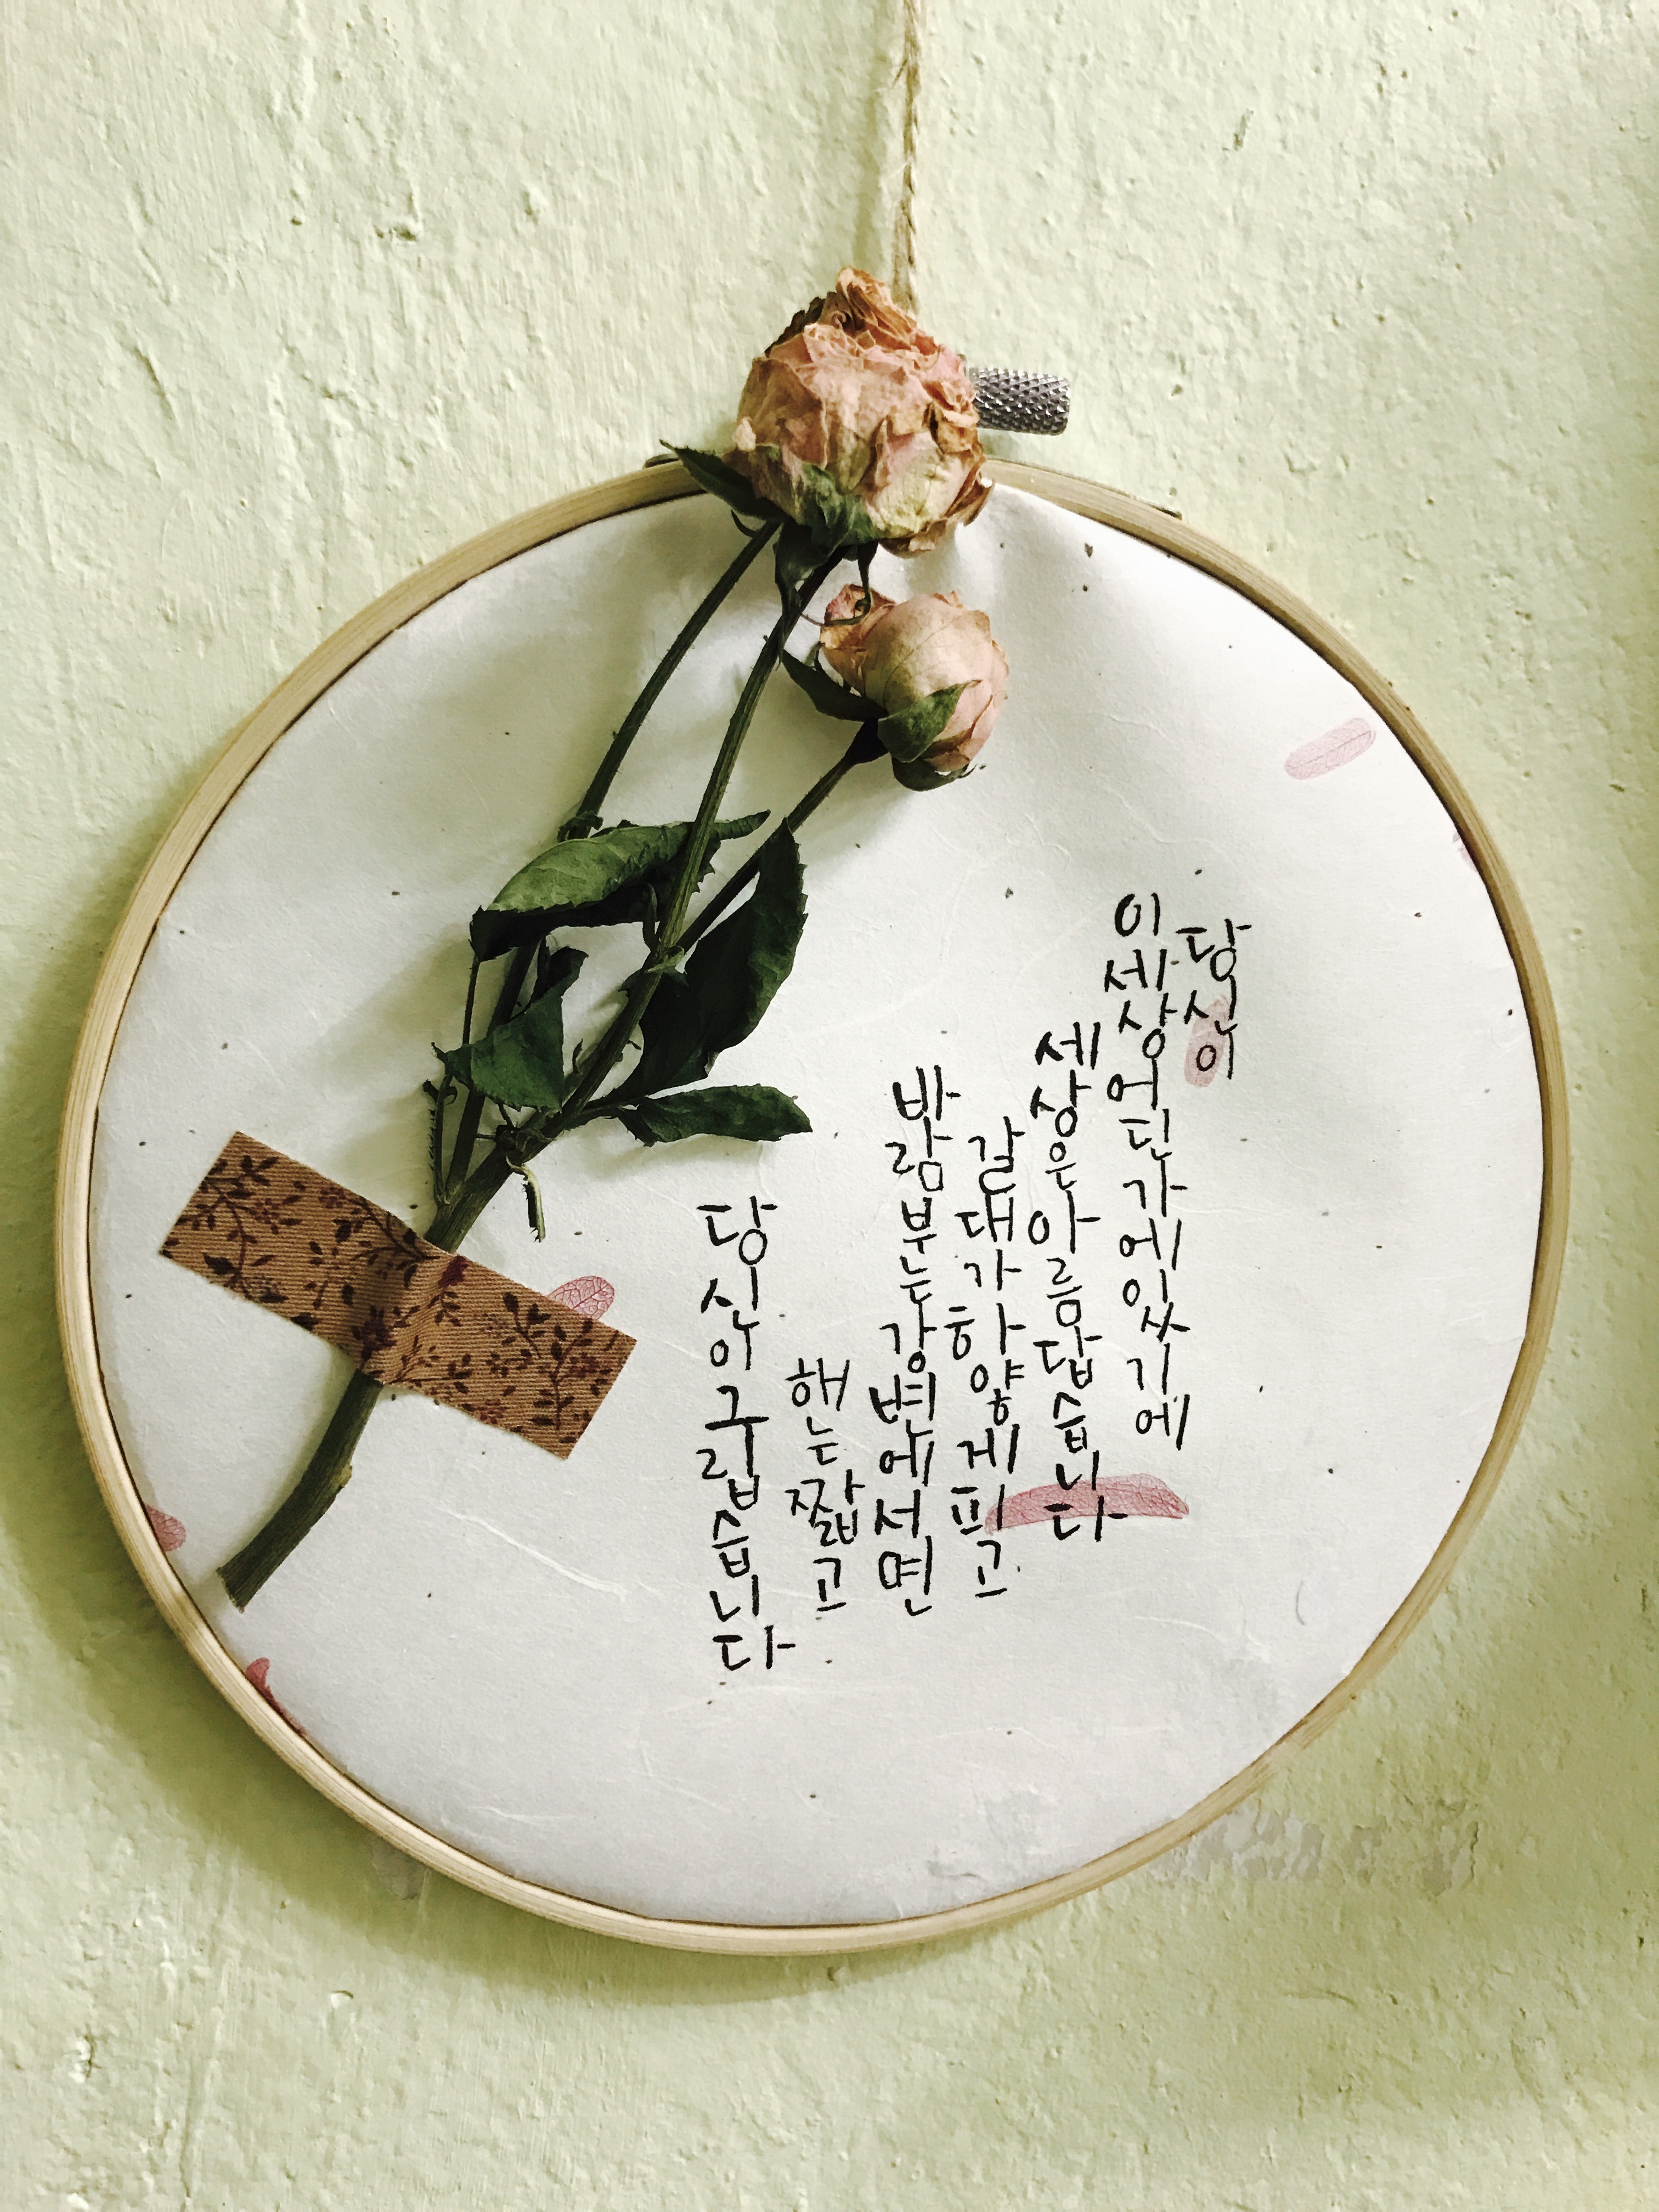 당신이
이세상어딘가에있기에
세상은아름답습니다
갈대가하얗게피고
바람부는강변에서면
해는짧고
당신이그립습니다